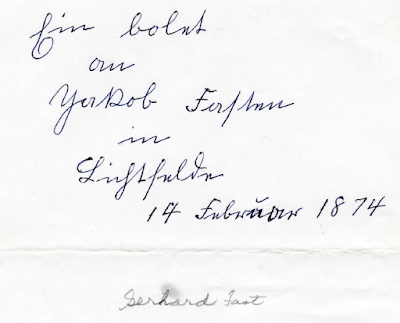 Ein bolet
an
Yakob Fasten
in
Lichtfelde
14 Februar 1874
Gerhard Fast